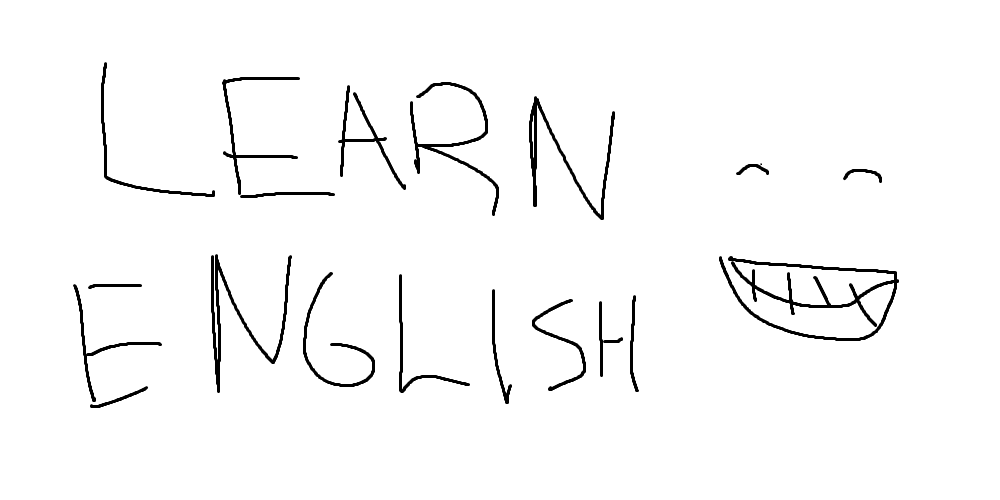 LEARN
ENGLISH